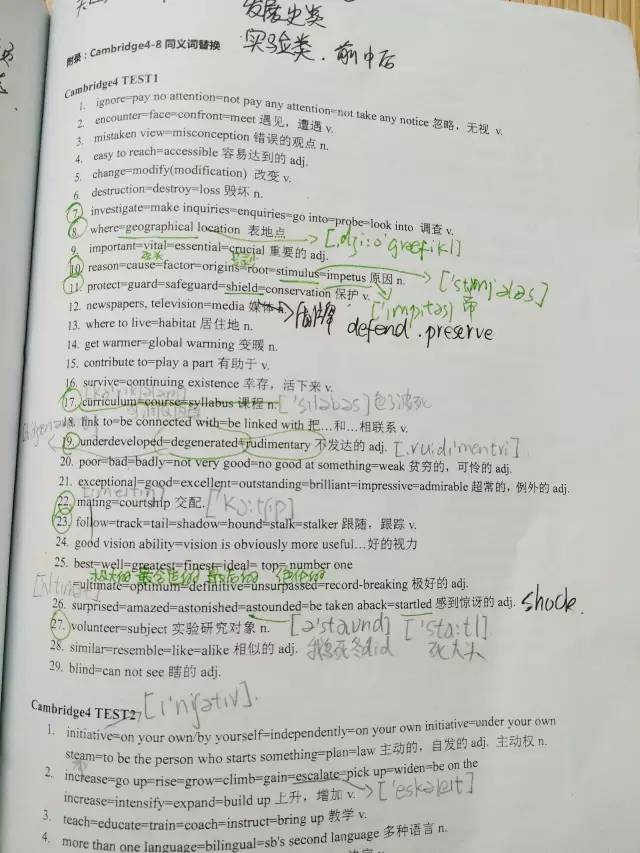 发展史类
实验类. 前中后
附录：Cambridge4-8 同义词替换
Cambridge4 TEST1
1. ignore=pay no attention=not pay any attention=not take any notice 忽略，无视 v.
2. encounter=face=confront=meet 遇见，遭遇 v.
3. mistaken view=misconception 错误的观点 n.
4. easy to reach=accessible 容易达到的 adj.
5. change=modify(modification) 改变 v.
6. destruction=destroy=loss 毁坏 n.
7. investigate=make inquiries=enquiries=go into=probe=look into 调查 v.
8. where=geographical location 表地点
9. important=vital=essential=crucial 重要的 adj.
10. reason=cause=factor=origins=root=stimulus=impetus 原因 n.
11. protect=guard=safeguard=shield=conservation 保护 v.
['impitəs]
12. newspapers, television=media 媒体 n.
defend. preserve
13. where to live=habitat 居住地 n.
14. get warmer=global warming 变暖 n.
15. contribute to=play a part 有助于 v.
16. survive=continuing existence 幸存，活下来 v.
17. curriculum=course=syllabus 课程 n. ['siləbəs]
18. link to=be connected with=be linked with 把…和…相联系 v.
19. underdeveloped=degenerated=rudimentary 不发达的 adj. [.ru:di'mentri]
20. poor=bad=badly=not very good=no good at something=weak 贫穷的，可怜的 adj.
21. exceptional=good=excellent=outstanding=brilliant=impressive=admirable 超常的，例外的 adj.
22. mating=courtship 交配 ['kɔ:tʃip]
23. follow=track=tail=shadow=hound=stalk=stalker 跟随，跟踪 v.
24. good vision ability=vision is obviously more useful…好的视力
25. best=well=greatest=finest=ideal= top=number one
=ultimate=optimum=definitive=unsurpassed=record-breaking 极好的 adj.
26. surprised=amazed=astonished=astounded=be taken aback=startled 感到惊讶的 adj. shock.
27. volunteer=subject 实验研究对象 n. [ə'staund] ['sta:tl]
28. similar=resemble=like=alike 相似的 adj. 死大头
29. blind=can not see 瞎的 adj.
Cambridge4 TEST2
1. initiative=on your own/by yourself=independently=on your own initiative=under your own
steam=to be the person who starts something=plan=law 主动的，自发的 adj. 主动权 n.
2. increase=go up=rise=grow=climb=gain=escalate=pick up=widen=be on the
increase=intensify=expand=build up 上升，增加 v. ['eskəleit]
3. teach=educate=train=coach=instruct=bring up 教学 v.
4. more than one language=bilingual=sb's second language 多种语言 n.